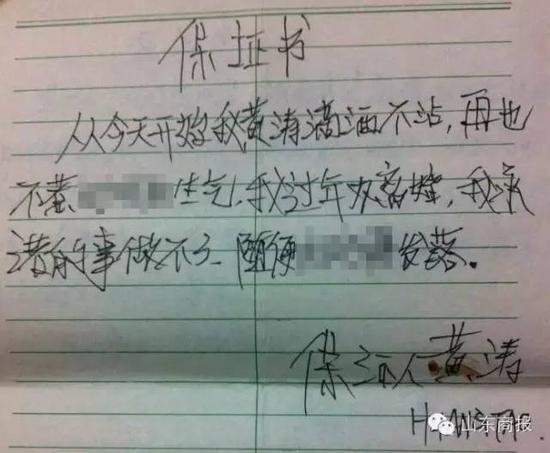 保证书
从从今天开始我黄涛滴酒不沾,再也
不惹 生气,我过年 ,我承
诺的事做不了.随便 发落.
保证人黄涛
山东商报